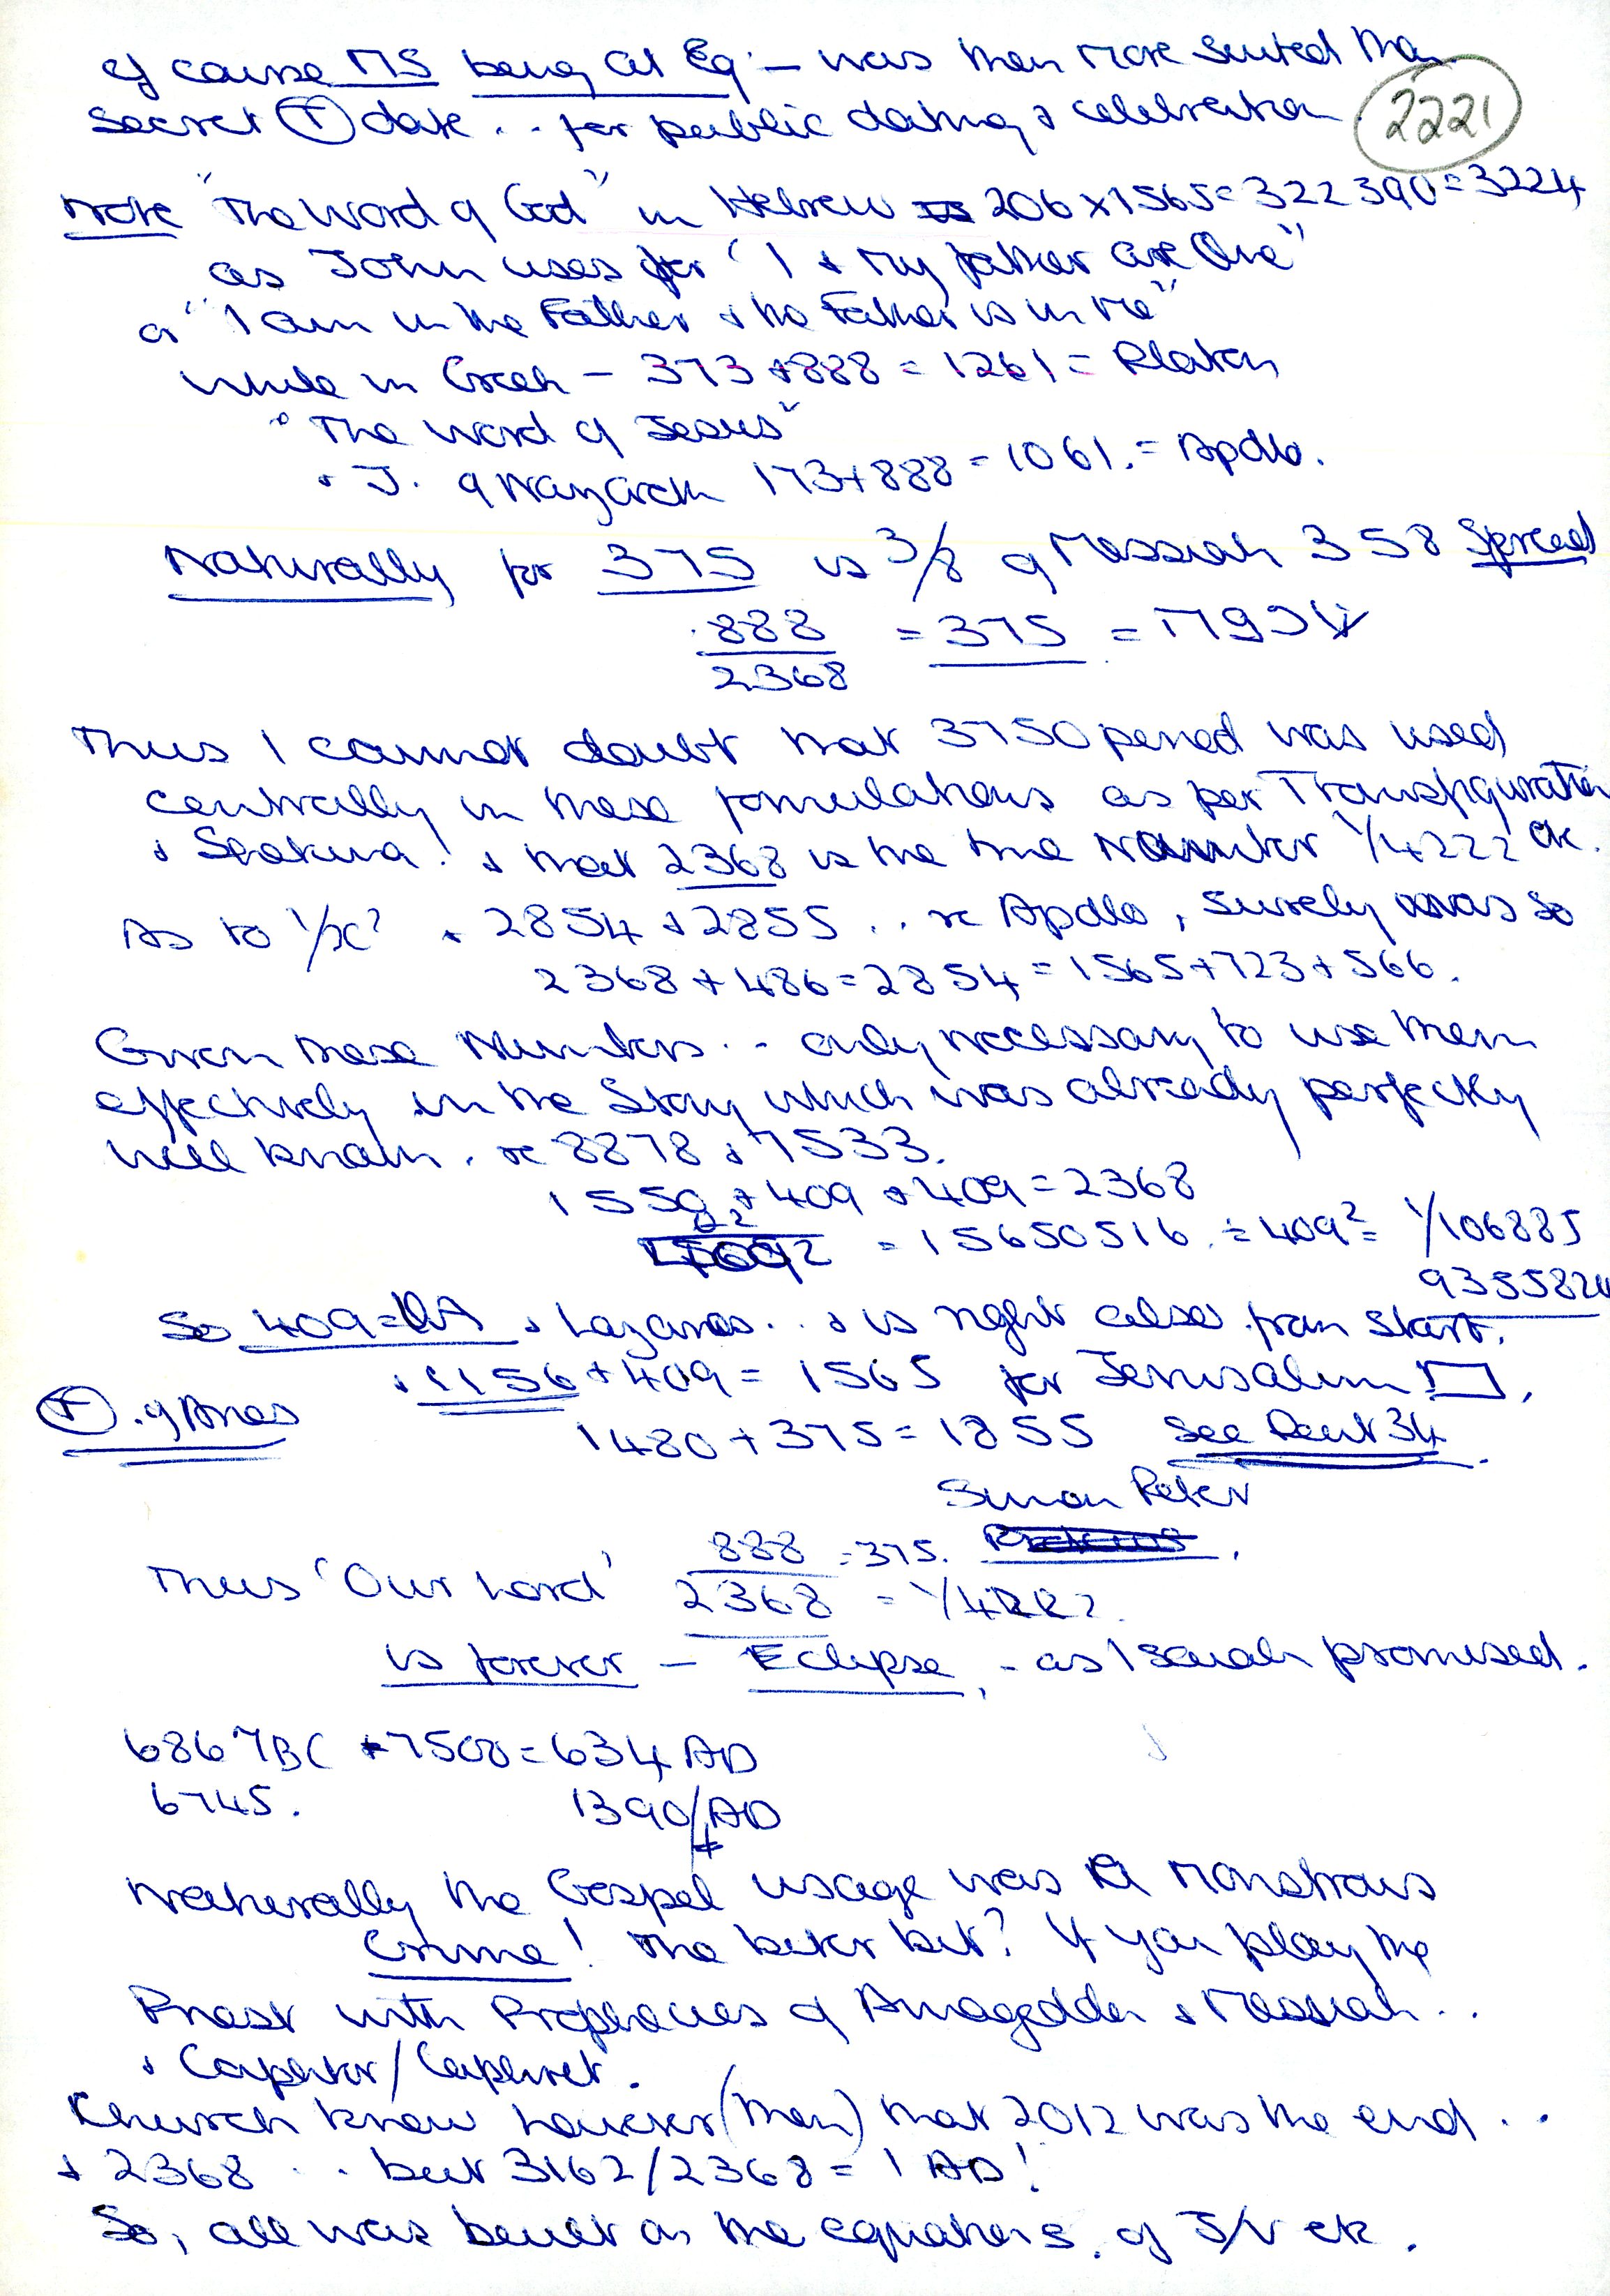 of course MS being at Eq: – was then more suited than
secret ♈ date .. for public dating & celebration
2221
Note "The Word of God" in Hebrew is 206 x 1565 = 322390 = 3224
as John uses for "I & My father are One"
or "I am in the Father & the Father is in Me"
while in Greek – 373 + 888 = 1261 = Platon
"The Word of Jesus"
& J. of Nazareth 173 + 888 = 1061. = Apollo.
Naturally for 375 is 3/8 of Messiah 358 Spread
888/2368 = 375 =
Thus I cannot doubt that 3750 period was used
centrally in these formulations as per Transfiguration
& Shekina! & that 2368 is the true Number 1/4222 etc.
As to 1/x? & 2854 + 2855 .. re Apollo, surely was so
2368 + 486 = 2854 = 1565 + 723 + 566.
Given these Numbers .. only necessary to use them
effectively in the Story which was already perfectly
well known. re 8878 & 7533.
1550 + 409 + 409 = 2368
= 15650516. ÷ 409² = 1/106885
9355824
So 409 = & Lazarus .. & is right also from start.
& 1156 + 409 = 1565 for Jerusalem ▭.
♈ . of Aries
1480 + 375 = 1855 See Deut 34.
Simon Peter
Thus 'Our Lord' 888/2368 = 375. = 1/4222.
is forever – Eclipse, – as Isaiah promised.
6867 BC + 7500 = 634 AD
6745. 1390/1 AD
Naturally the Gospel usage was a Monstrous
Crime! The biter bit? If you play the
Priest with Prophecies of Amagedder & Messiah ..
&
Church knew however (then) that 2012 was the end ..
& 2368 .. but 3162/2368 = 1 AD!
So, all was built on the equations. of J/V etc.